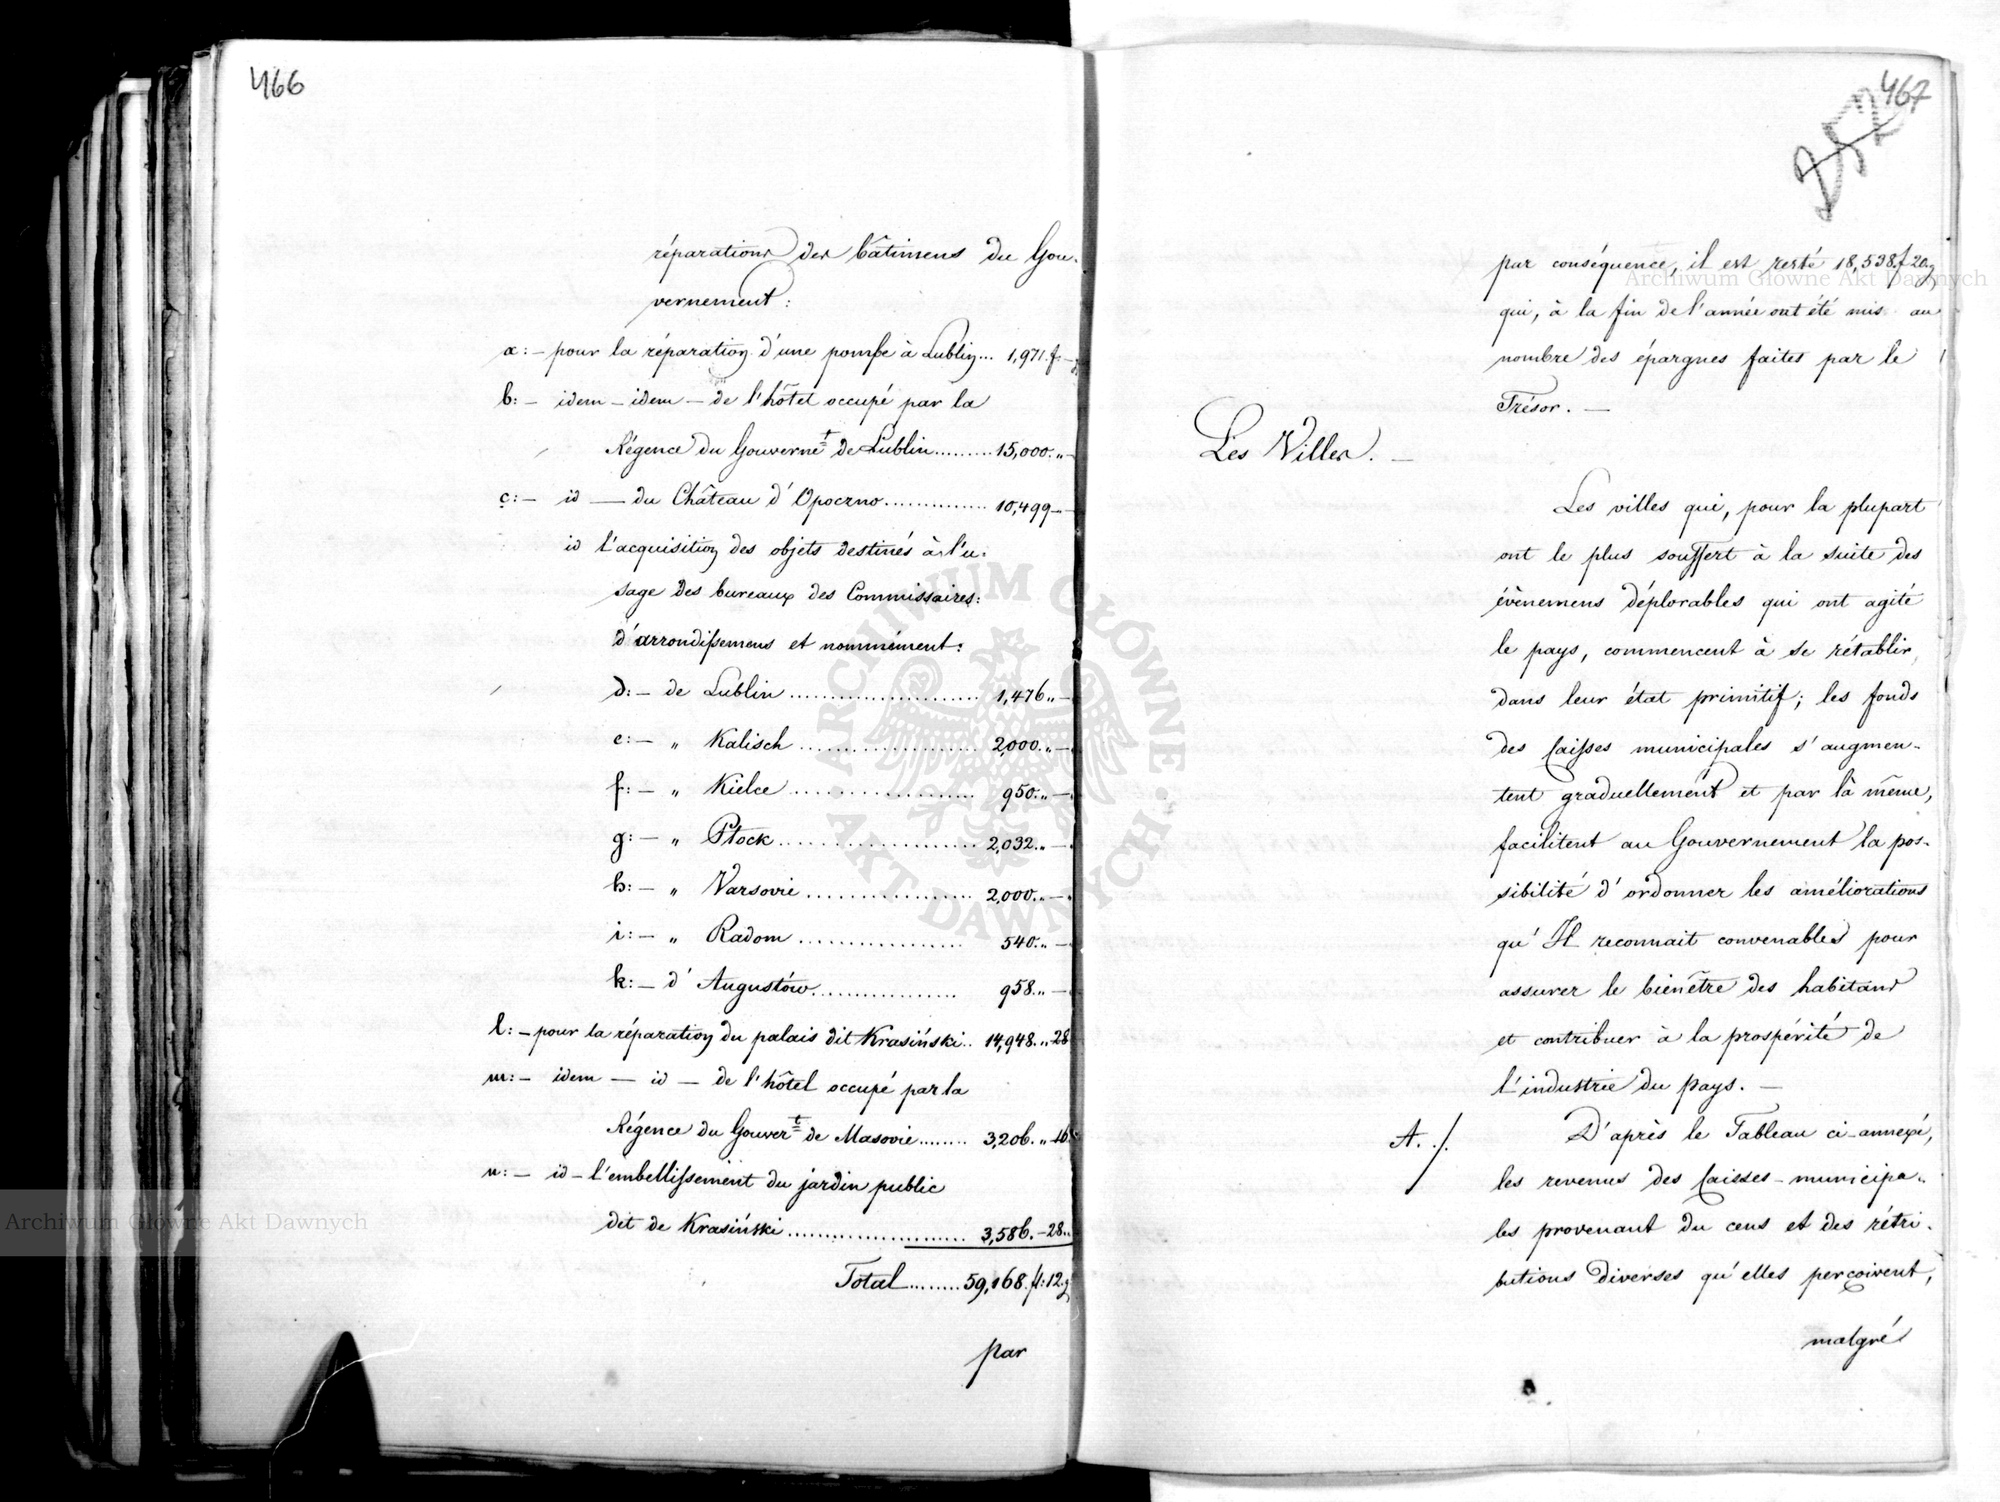 466
réparations des bâtimens du Gou-
vernement:
a:- pour la réparation d'une pompe à Lublin... 1,971.f.-
b:- idem - idem - de l'hôtel occupé par la
Régence du Gouvernet de Lublin......... 15,000.„-
c:- id — du Château d'Opoczno.............. 10,499„-
id l'acquisition des objets destinés à l'u-
sage des bureaux des Commissaires:
d'arrondissemens et nommément:
d:- de Lublin ........................ 1,476„-
e:- „ Kalisch ...................... 2,000.„-
f:- „ Kielce ...................... 950.„-
g:- „ Płock ........................ 2,032.„-
h:- „ Varsovie .................... 2,000.„-
i:- „ Radom .................... 540.„-
k:- d'Augustów .................. 958.„-
l:- pour la réparation du palais dit Krasiński.. 14,948.„28
m:- idem — id — de l'hôtel occupé par la
Régence du Gouvert de Masovie........ 3,206.„16
n:- id - l'embellissement du jardin public
dit de Krasiński ........................ 3,586.-28„
Total ......... 59,168.fl:12.g
par
467
252
par conséquence, il est resté 18,538.f 20g
qui, à la fin de l'année ont été mis au
nombre des épargnes faites par le
Trésor. —
Les Villes. —
Les villes qui, pour la plupart
ont le plus souffert à la suite des
évènemens déplorables qui ont agité
le pays, commencent à se rétablir
dans leur état primitif; les fonds
des Caisses municipales s'augmen-
tent graduellement et par là même,
facilitent au Gouvernement la pos-
sibilité d'ordonner les améliorations
qu'Il reconnait convenables pour
assurer le bienêtre des habitans
et contribuer à la prospérité de
l'industrie du pays. —
A. ./.
D'après le Tableau ci-annexé,
les revenus des Caisses-municipa-
les provenant du cens et des rétri-
butions diverses qu'elles perçoivent,
malgré
Archiwum Główne Akt Dawnych
Archiwum Główne Akt Dawnych
ARCHIWUM GŁÓWNE AKT DAWNYCH